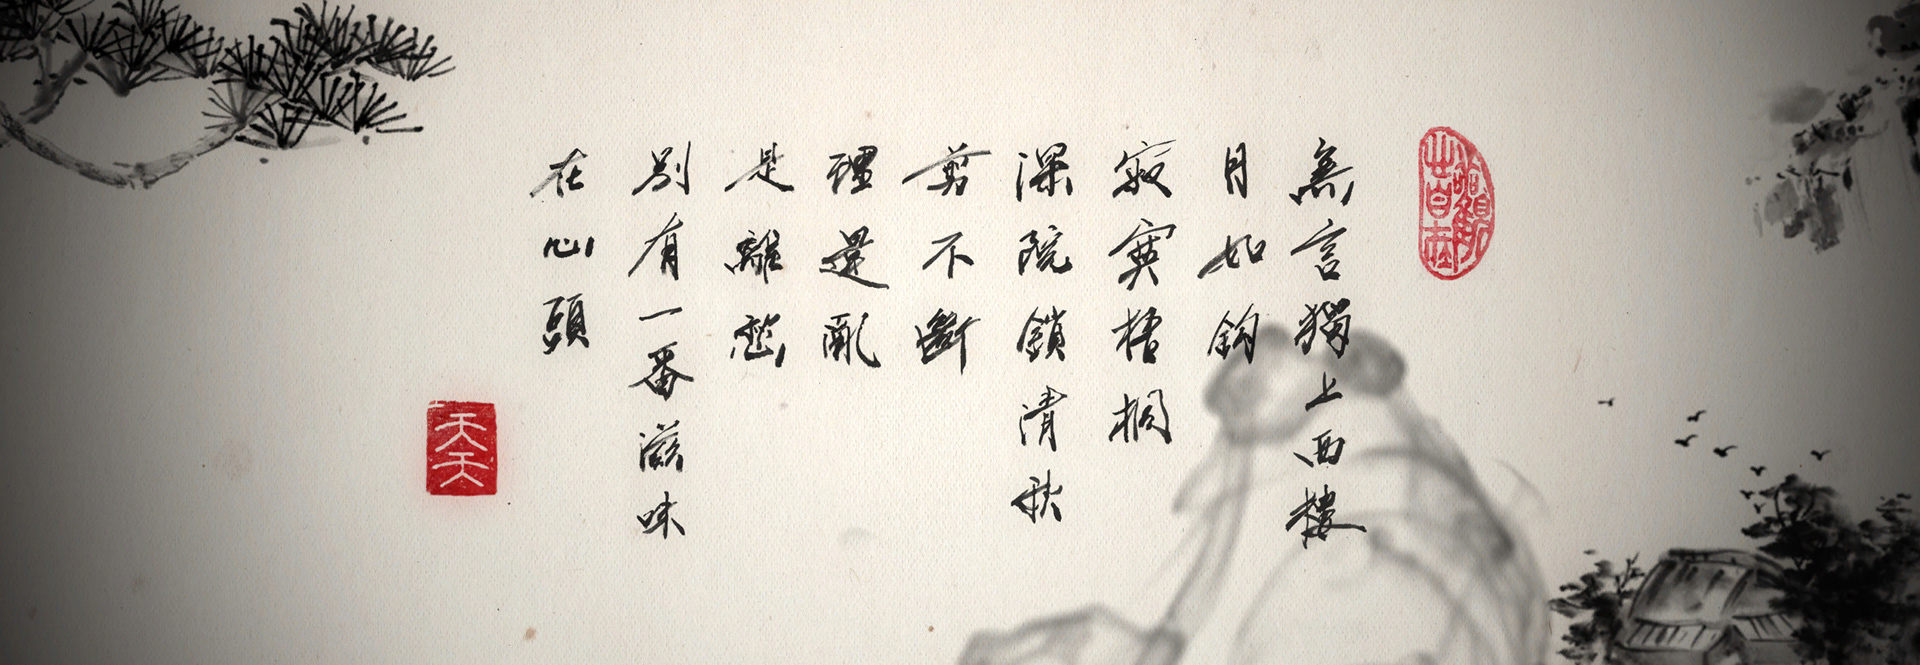 無言獨上西樓
月如鈎
寂寞梧桐
深院鎖清秋
剪不斷
理還亂
是離愁
別有一番滋味
在心頭
天天